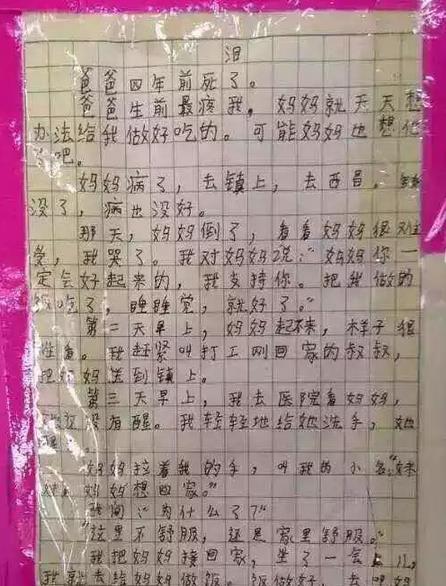 泪
爸爸四年前死了。
爸爸生前最疼我，妈妈就天天想
办法给我做好吃的。可能妈妈也想他
了吧。
妈妈病了，去镇上，去西昌。钱
没了，病也没好。
那天，妈妈倒了，看着妈妈很难
受，我哭了。我对妈妈说：“妈妈你一
定会好起来的，我支持你。把我做的
饭吃了，睡睡觉，就好了。”
第二天早上，妈妈起不来，样子很
难看。我赶紧叫打工刚回家的叔叔，
把妈妈送到镇上。
第三天早上，我去医院看妈妈，
没有醒。我轻轻地给她洗手，她
妈妈拉着我的手，叫我的小名：“妹
妈妈想回家。”
我问：“为什么了？”
“这里不舒服，还是家里舒服。”
我把妈妈接回家，坐了一会儿，
我就去给妈妈做饭。饭做好，去